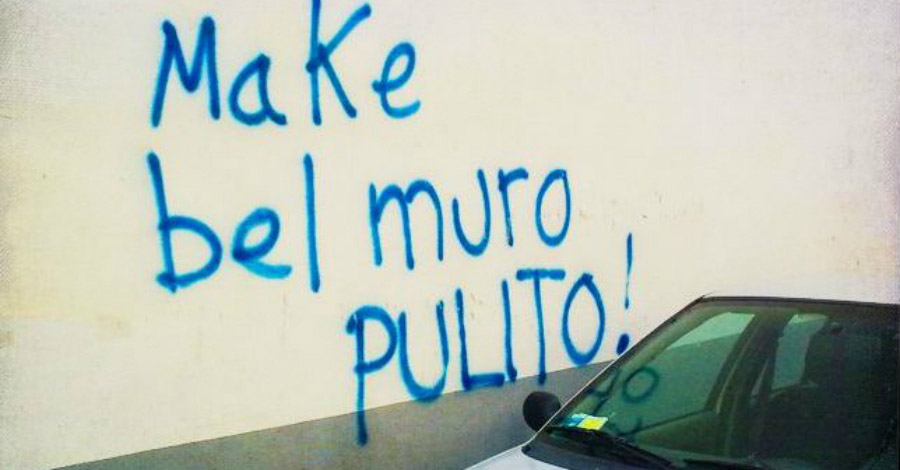 Make
bel muro
PULITO!